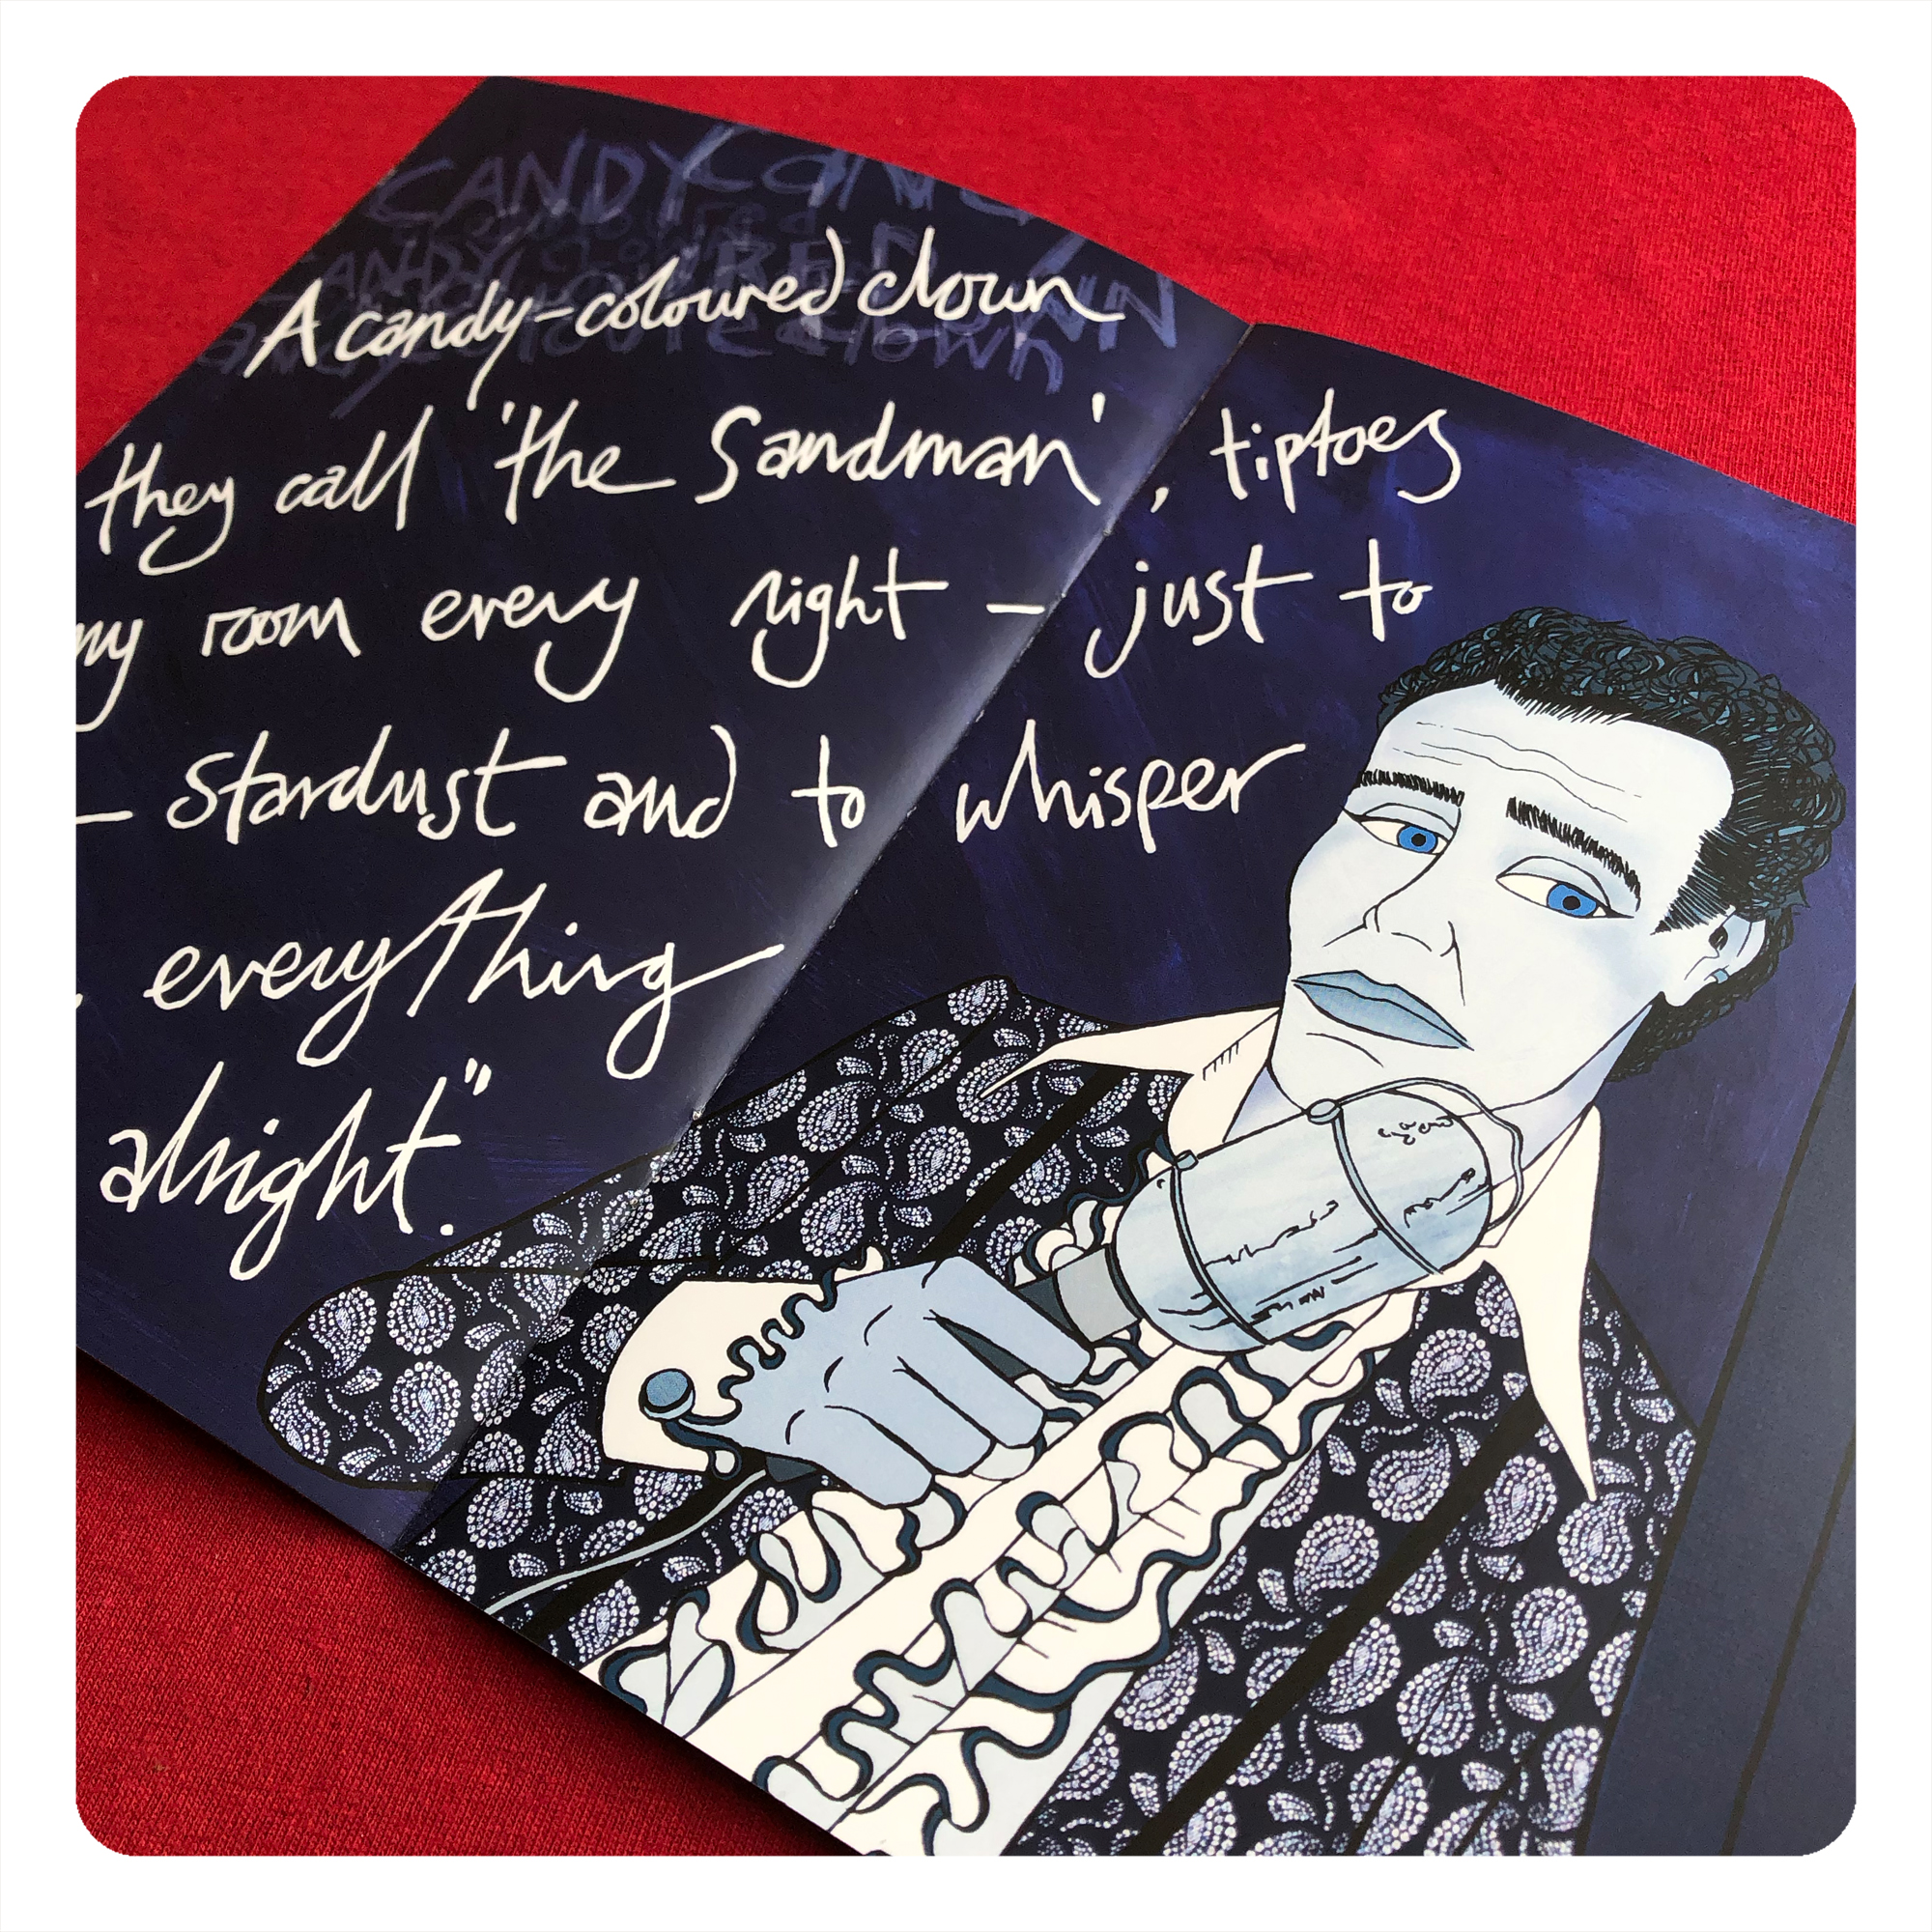 CANDY CAND
coloured
CANDY
CLOWN
clown
A candy-coloured clown
they call 'the Sandman', tiptoes
my room every night – just to
– stardust and to whisper
everything
alright".